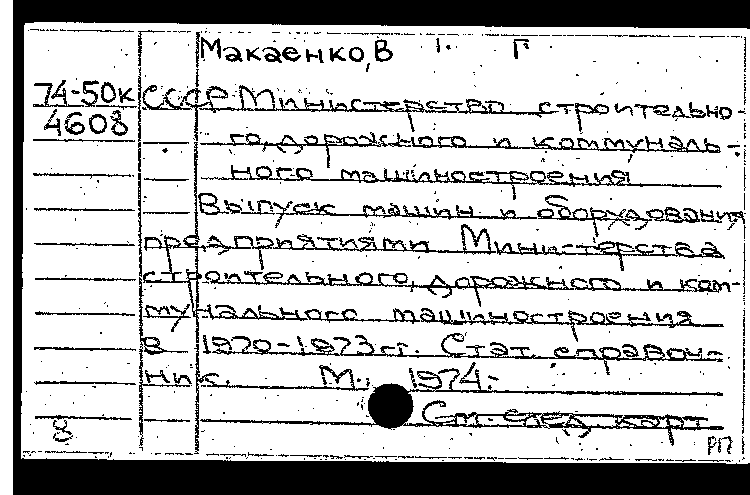 Макаенко, В Г
74-50к СССР Министерство строительно-
4608 го, дорожного и коммуналь-
ного машиностроения
Выпуск машин и оборудования
предприятиями Министерства
строительного, дорожного и ком-
мунального машиностроения
в 1970-1973 гг. Стат. справоч-
ник. М., 1974.
См. след. карт
8 РП